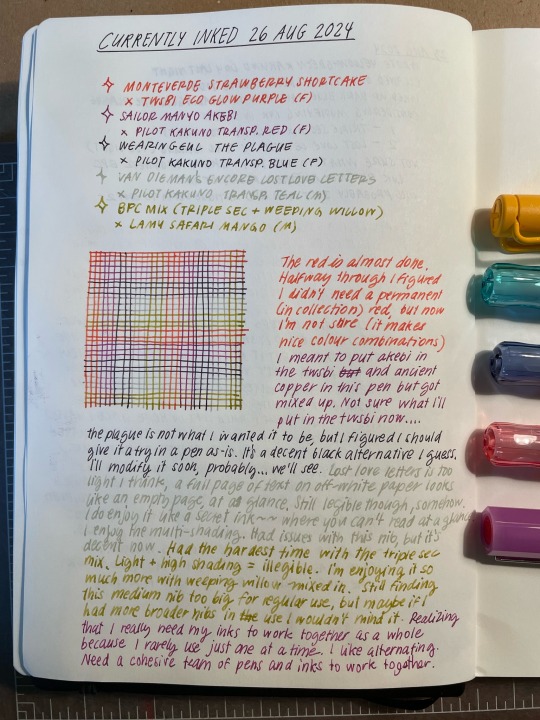 CURRENTLY INKED 26 AUG 2024
MONTEVERDE STRAWBERRY SHORTCAKE
x TWSBI ECO GLOW PURPLE (F)
SAILOR MANYO AKEBI
x PILOT KAKUNO TRANSP. RED (F)
WEARINGEUL THE PLAGUE
x PILOT KAKUNO TRANSP. BLUE (F)
VAN DIEMANS ENCORE LOST LOVE LETTERS
x PILOT KAKUNO TRANSP. TEAL (M)
BPC MIX (TRIPLE SEC + WEEPING WILLOW)
x LAMY SAFARI MANGO (M)
The red is almost done.
Halfway through I figured
I didn't need a permanent
(in collection) red, but now
I'm not sure (it makes
nice colour combinations)
I meant to put akebi in
the twsbi but and ancient
copper in this pen but got
mixed up. Not sure what I'll
put in the twsbi now....
the plague is not what I wanted it to be, but I figured I should
give it a try in a pen as-is. It's a decent black alternative I guess.
I'll modify it soon, probably... we'll see. Lost love letters is too
light I think, a full page of text on off-white paper looks
like an empty page, at a glance. Still legible though, somehow.
I do enjoy it like a secret ink~~ where you can't read at a glance
I enjoy the multi-shading. Had issues with this nib, but it's
decent now. Had the hardest time with the triple sec
mix. Light + high shading = illegible. I'm enjoying it so
much more with weeping willow mixed in. Still finding
this medium nib too big for regular use, but maybe if I
had more broader nibs in the use I wouldn't mind it. Realizing
that I really need my inks to work together as a whole
because I rarely use just one at a time. I like alternating.
Need a cohesive team of pens and inks to work together.